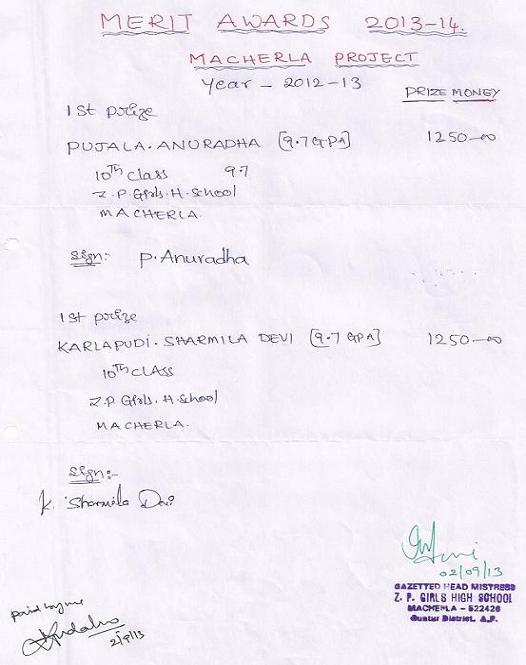 MERIT AWARDS 2013-14.
MACHERLA PROJECT
Year - 2012-13
PRIZE MONEY
1st prize
PUJALA. ANURADHA [9.7 GPA] 1250-00
10th class 9.7
Z.P. Girls. H. School
MACHERLA.
Sign: P. Anuradha
1st prize
KARLAPUDI. SHARMILA DEVI [9.7 GPA] 1250-00
10th CLASS
Z.P. Girls. H. School
MACHERLA.
Sign:-
K. Sharmila Devi
02/09/13
GAZETTED HEAD MISTRESS
Z. P. GIRLS HIGH SCHOOL
MACHERLA - 522426
Guntur District. A.P.
paid by me
2/9/13